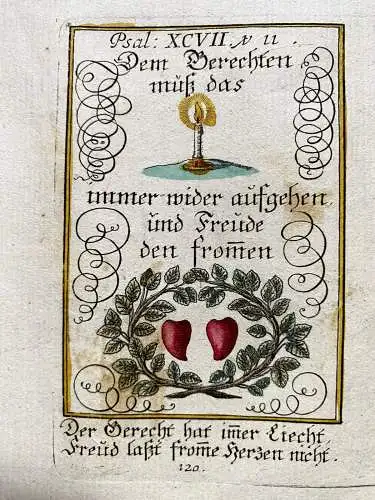 Psal: XCVII. v 11.
Dem Gerechten
müß das
immer wider aufgehen
und Freude
den from̅en
Der Gerecht hat im̅er Liecht,
Freud laßt from̅e Herzen nicht.
120.